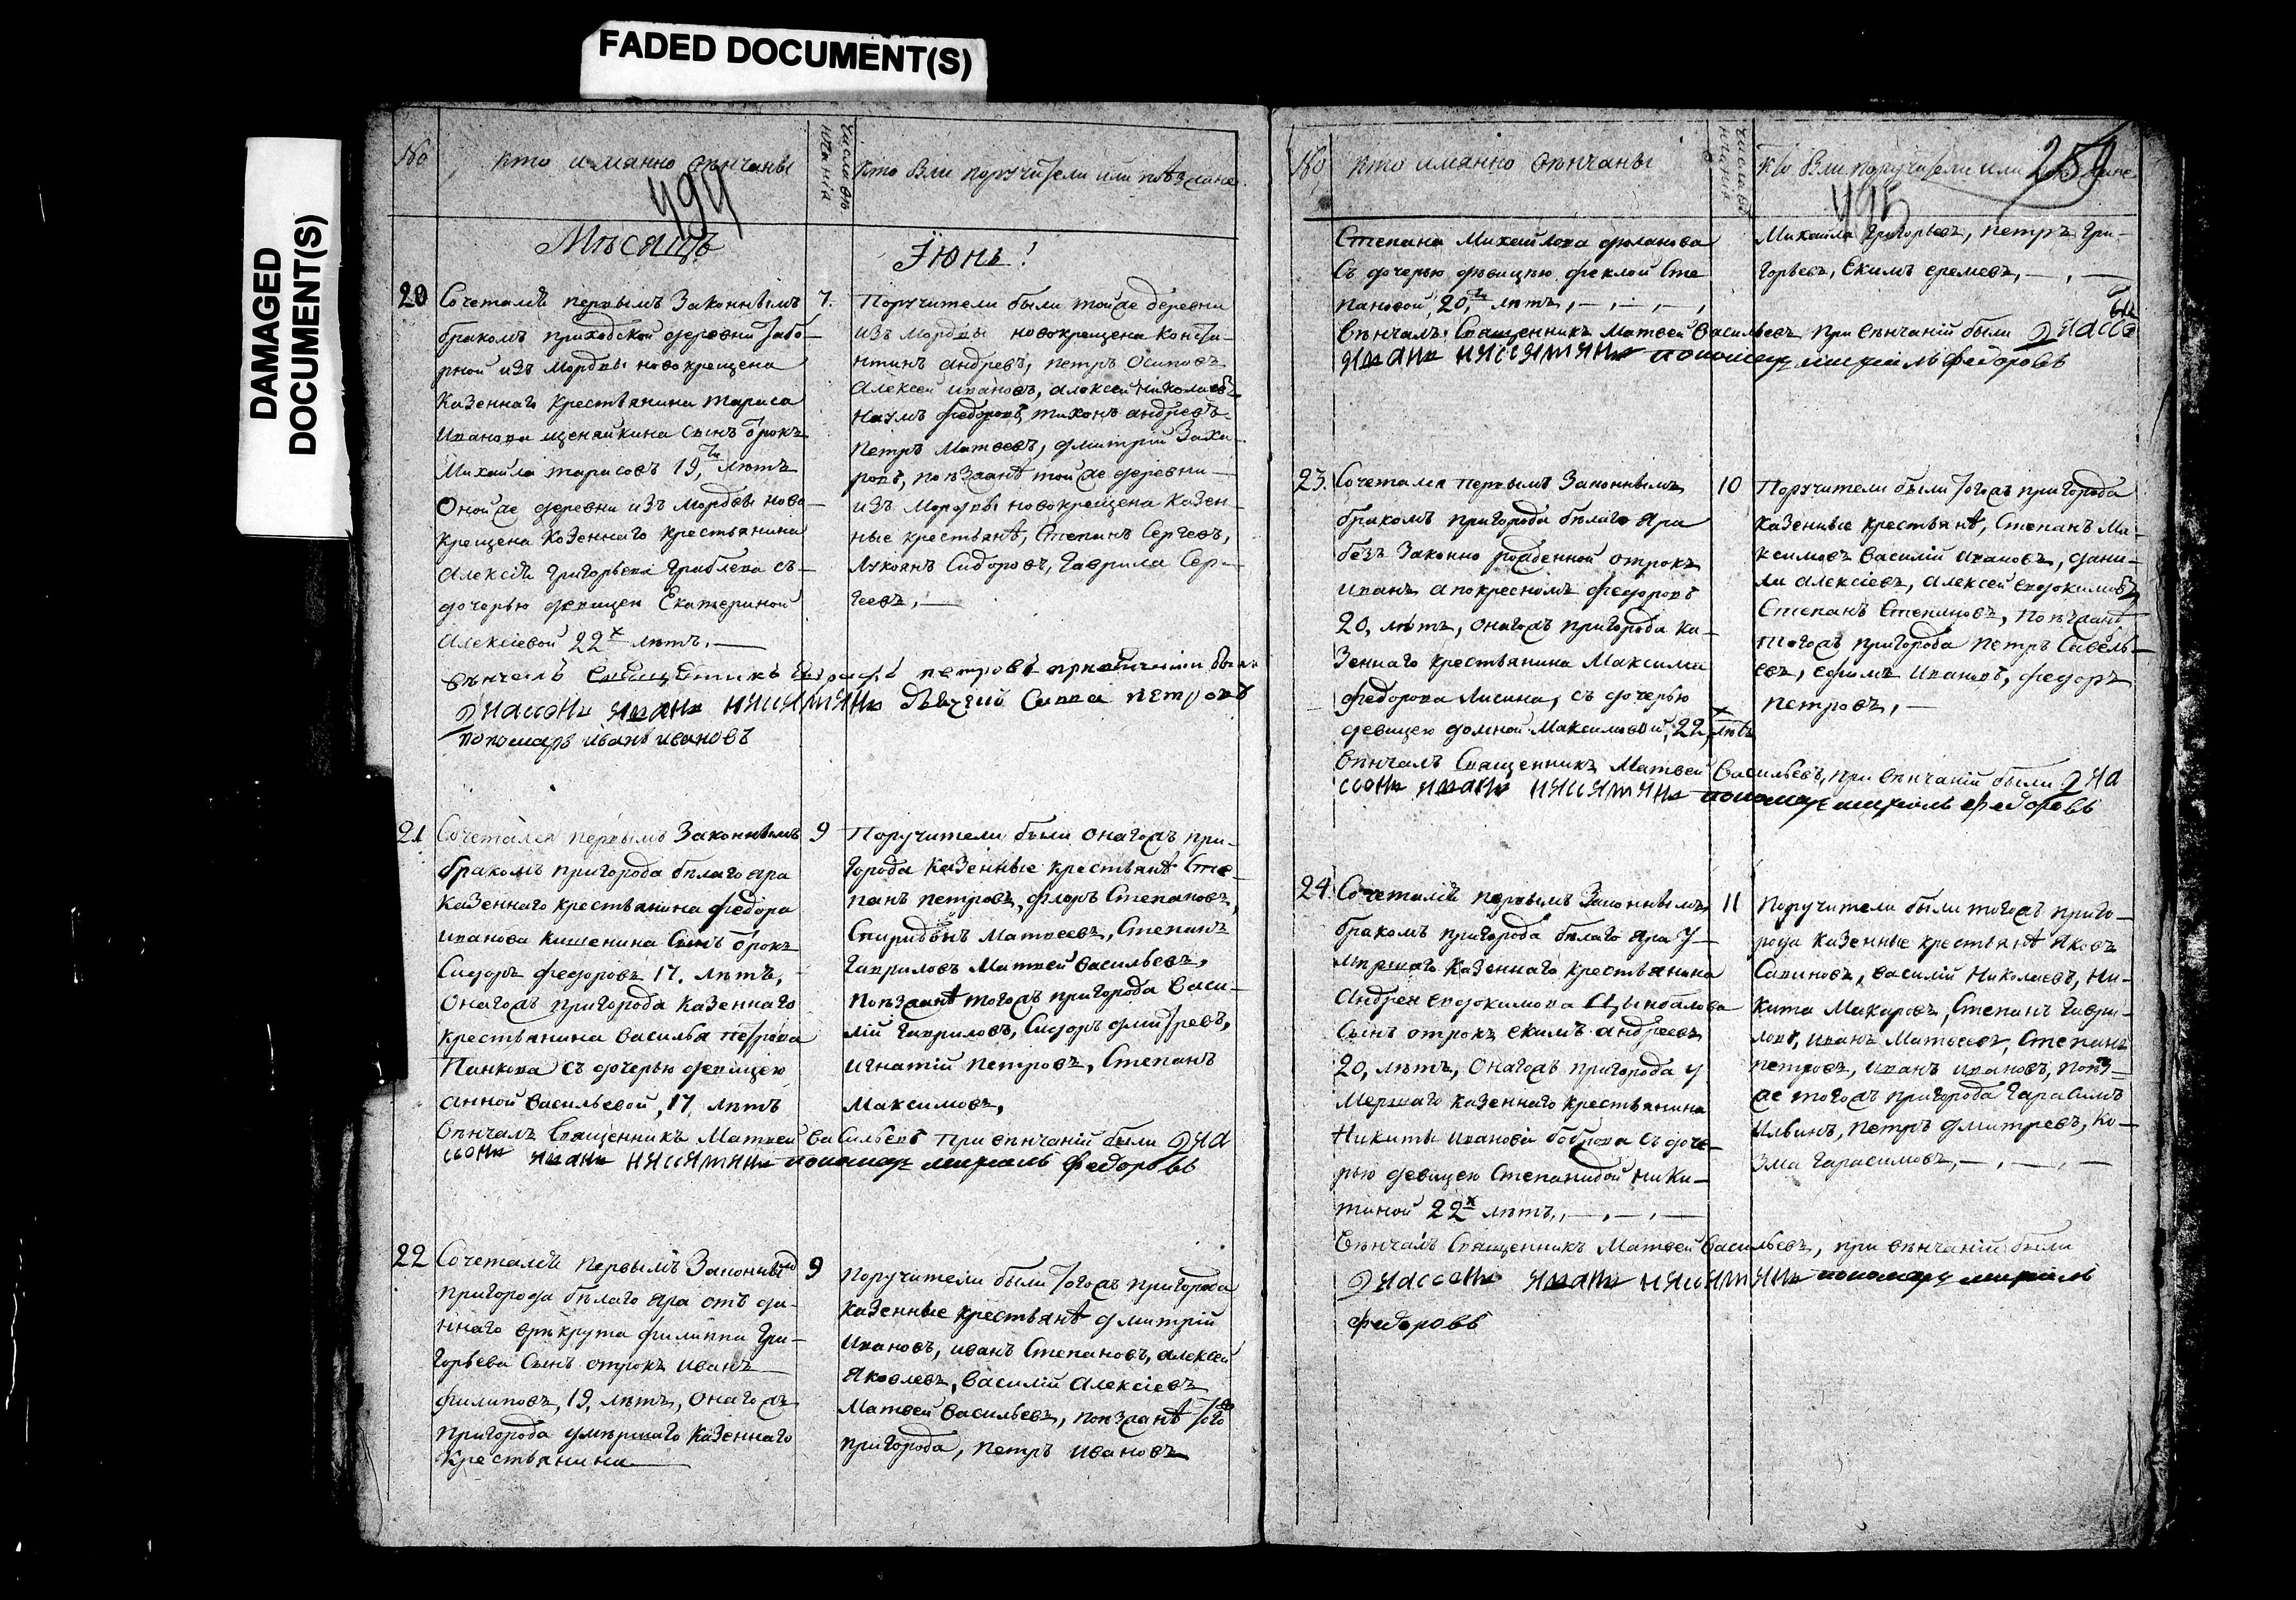 FADED DOCUMENT(S)
DAMAGED
DOCUMENT(S)
No
кто имянно венчаны
494
Кто вли поручители или поезжане
Мѣсяцъ
Їюнь!
20
Сочетался первымъ Законнымъ
бракомъ приходской деревни
рной изъ Мордвы новокрещена
Казеннаго крестьянина тараса
Иванова сынъ отрокъ
Михайла тарасовъ 19, лѣтъ
Оной же деревни изъ Мордвы ново
крещена Козеннаго крестьянина
Алексѣя Григорьева съ
дочерью девицей Екатериной
Алексіевой 22х лѣтъ.
7.
Поручители были той же деревни
изъ Мордвы новокрещена Конста-
нтинъ андревъ, петръ Осиповъ
Алексей ивановъ, алексей николаевъ
Наумъ федоровъ, тихонъ андревъ
Петръ Матвеевъ, дмитрій Заха-
ровъ, поѣзжанѣ той же деревни
изъ Мордвы новокрещена Казен-
ные крестьянѣ, Степанъ Сергеевъ,
Лукоянъ Сидоровъ, Гаврила Сер-
геевъ,
венчалъ Священникъ петровъ при венчаніи были
Савва петровъ
пономарь иванъ ивановъ
21
Сочетался первымъ Законнымъ
бракомъ пригорода бѣлаго яра
Казеннаго крестьянина федора
иванова Кишенина Сынъ отрокъ
Сидоръ федоровъ 17. лѣтъ,
Онагожъ пригорода Казеннаго
крестьянина Василья петрова
Панкова съ дочерью девицею
анной Васильевой, 17, лѣтъ
9
Поручители были онагожъ при-
города Казенные крестьянѣ Сте-
панъ петровъ, флоръ Степановъ,
Спиридонъ Матвеевъ, Степанъ
Гавриловъ Матвей Васильевъ,
Поѣзжанѣ тогожъ пригорода Васи-
лій Гавриловъ, Сидоръ дмитревъ,
игнатій петровъ, Степанъ
Максимовъ,
Вѣнчалъ Священникъ Матвей Васильевъ при вѣнчаній были
пономарь федоровъ
22
Сочетался первымъ Законнымъ
пригорода бѣлаго яра отъ да-
ннаго врѣкрута филиппа Гри-
горьева Сынъ отрокъ иванъ
филиповъ, 19, лѣтъ, онагожъ
пригорода умершаго Казеннаго
Крестьянина
9
Поручители были тогожъ пригорода
казенные крестьянѣ дмитрій
Ивановъ, иванъ Степановъ, алексей
Яковлевъ, Василій Алексіевъ
Матвей Васильевъ, поѣзжанѣ того
пригорода, петръ ивановъ
No
кто имянно венчаны
Кто вли поручители или
259
495
Степана Михайлова
Съ дочерью девицею феклой Сте
пановой, 20, лѣтъ,
Михайла Григорьевъ, петръ Гри-
горьевъ, Екимъ еремевъ,
Вѣнчалъ Священникъ Матвей Васильевъ при вѣнчаній были
пономарь федоровъ
23.
Сочетался первымъ Законнымъ
бракомъ пригорода бѣлаго яра
безъ Законно рожденной отрокъ
иванъ апокресномъ федоровъ
20, лѣтъ, онагожъ пригорода ка-
Зеннаго крестьянина Максима
федорова Лисина, съ дочерью
девицею домной Максимовой, 22, х лѣтъ
10
Поручители были тогожъ пригорода
Казенные крестьянѣ, Степанъ Ма-
ксимовъ Василій ивановъ, дани-
ла алексіевъ, алексей евдокимовъ,
Степанъ Степановъ, поѣзжанѣ
тогожъ пригорода петръ Савель-
евъ, ефимъ Ивановъ, федоръ
петровъ,
Вѣнчалъ Священникъ Матвей Васильевъ, при вѣнчаній были
пономарь федоровъ
24.
Сочетался первымъ Законнымъ
бракомъ пригорода бѣлаго яра у-
мершаго Казеннаго крестьянина
Андрея евдокимова Цынбалова
Сынъ отрокъ екимъ андреевъ
20, лѣтъ, Онагожъ пригорода у
Мершаго казеннаго крестьянина
Никиты Иванова боброва съ доче-
рью девицею Степанидой ники-
тиной 22х лѣтъ,
11
Поручители были тогожъ приго-
рода казенные крестьянѣ Яковъ
Савиновъ, Василій Николаевъ, Ни-
кита Макаровъ, Степанъ Гаври-
ловъ, иванъ Матвеевъ, Степанъ
петровъ, иванъ ивановъ, поѣз-
же тогожъ пригорода Гарасимъ
Ильинъ, петръ дмитревъ, Ко-
зма Гарасимовъ,
Вѣнчалъ Священникъ Матвей Васильевъ, при вѣнчаній были
пономарь
федоровъ